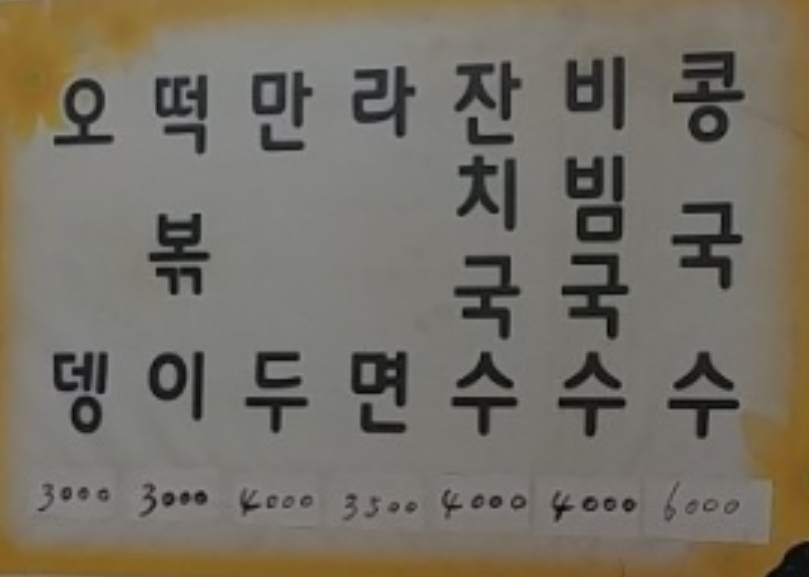 오뎅
떡볶이
만두
라면
잔치국수
비빔국수
콩국수
3000
3000
4000
3500
4000
4000
6000